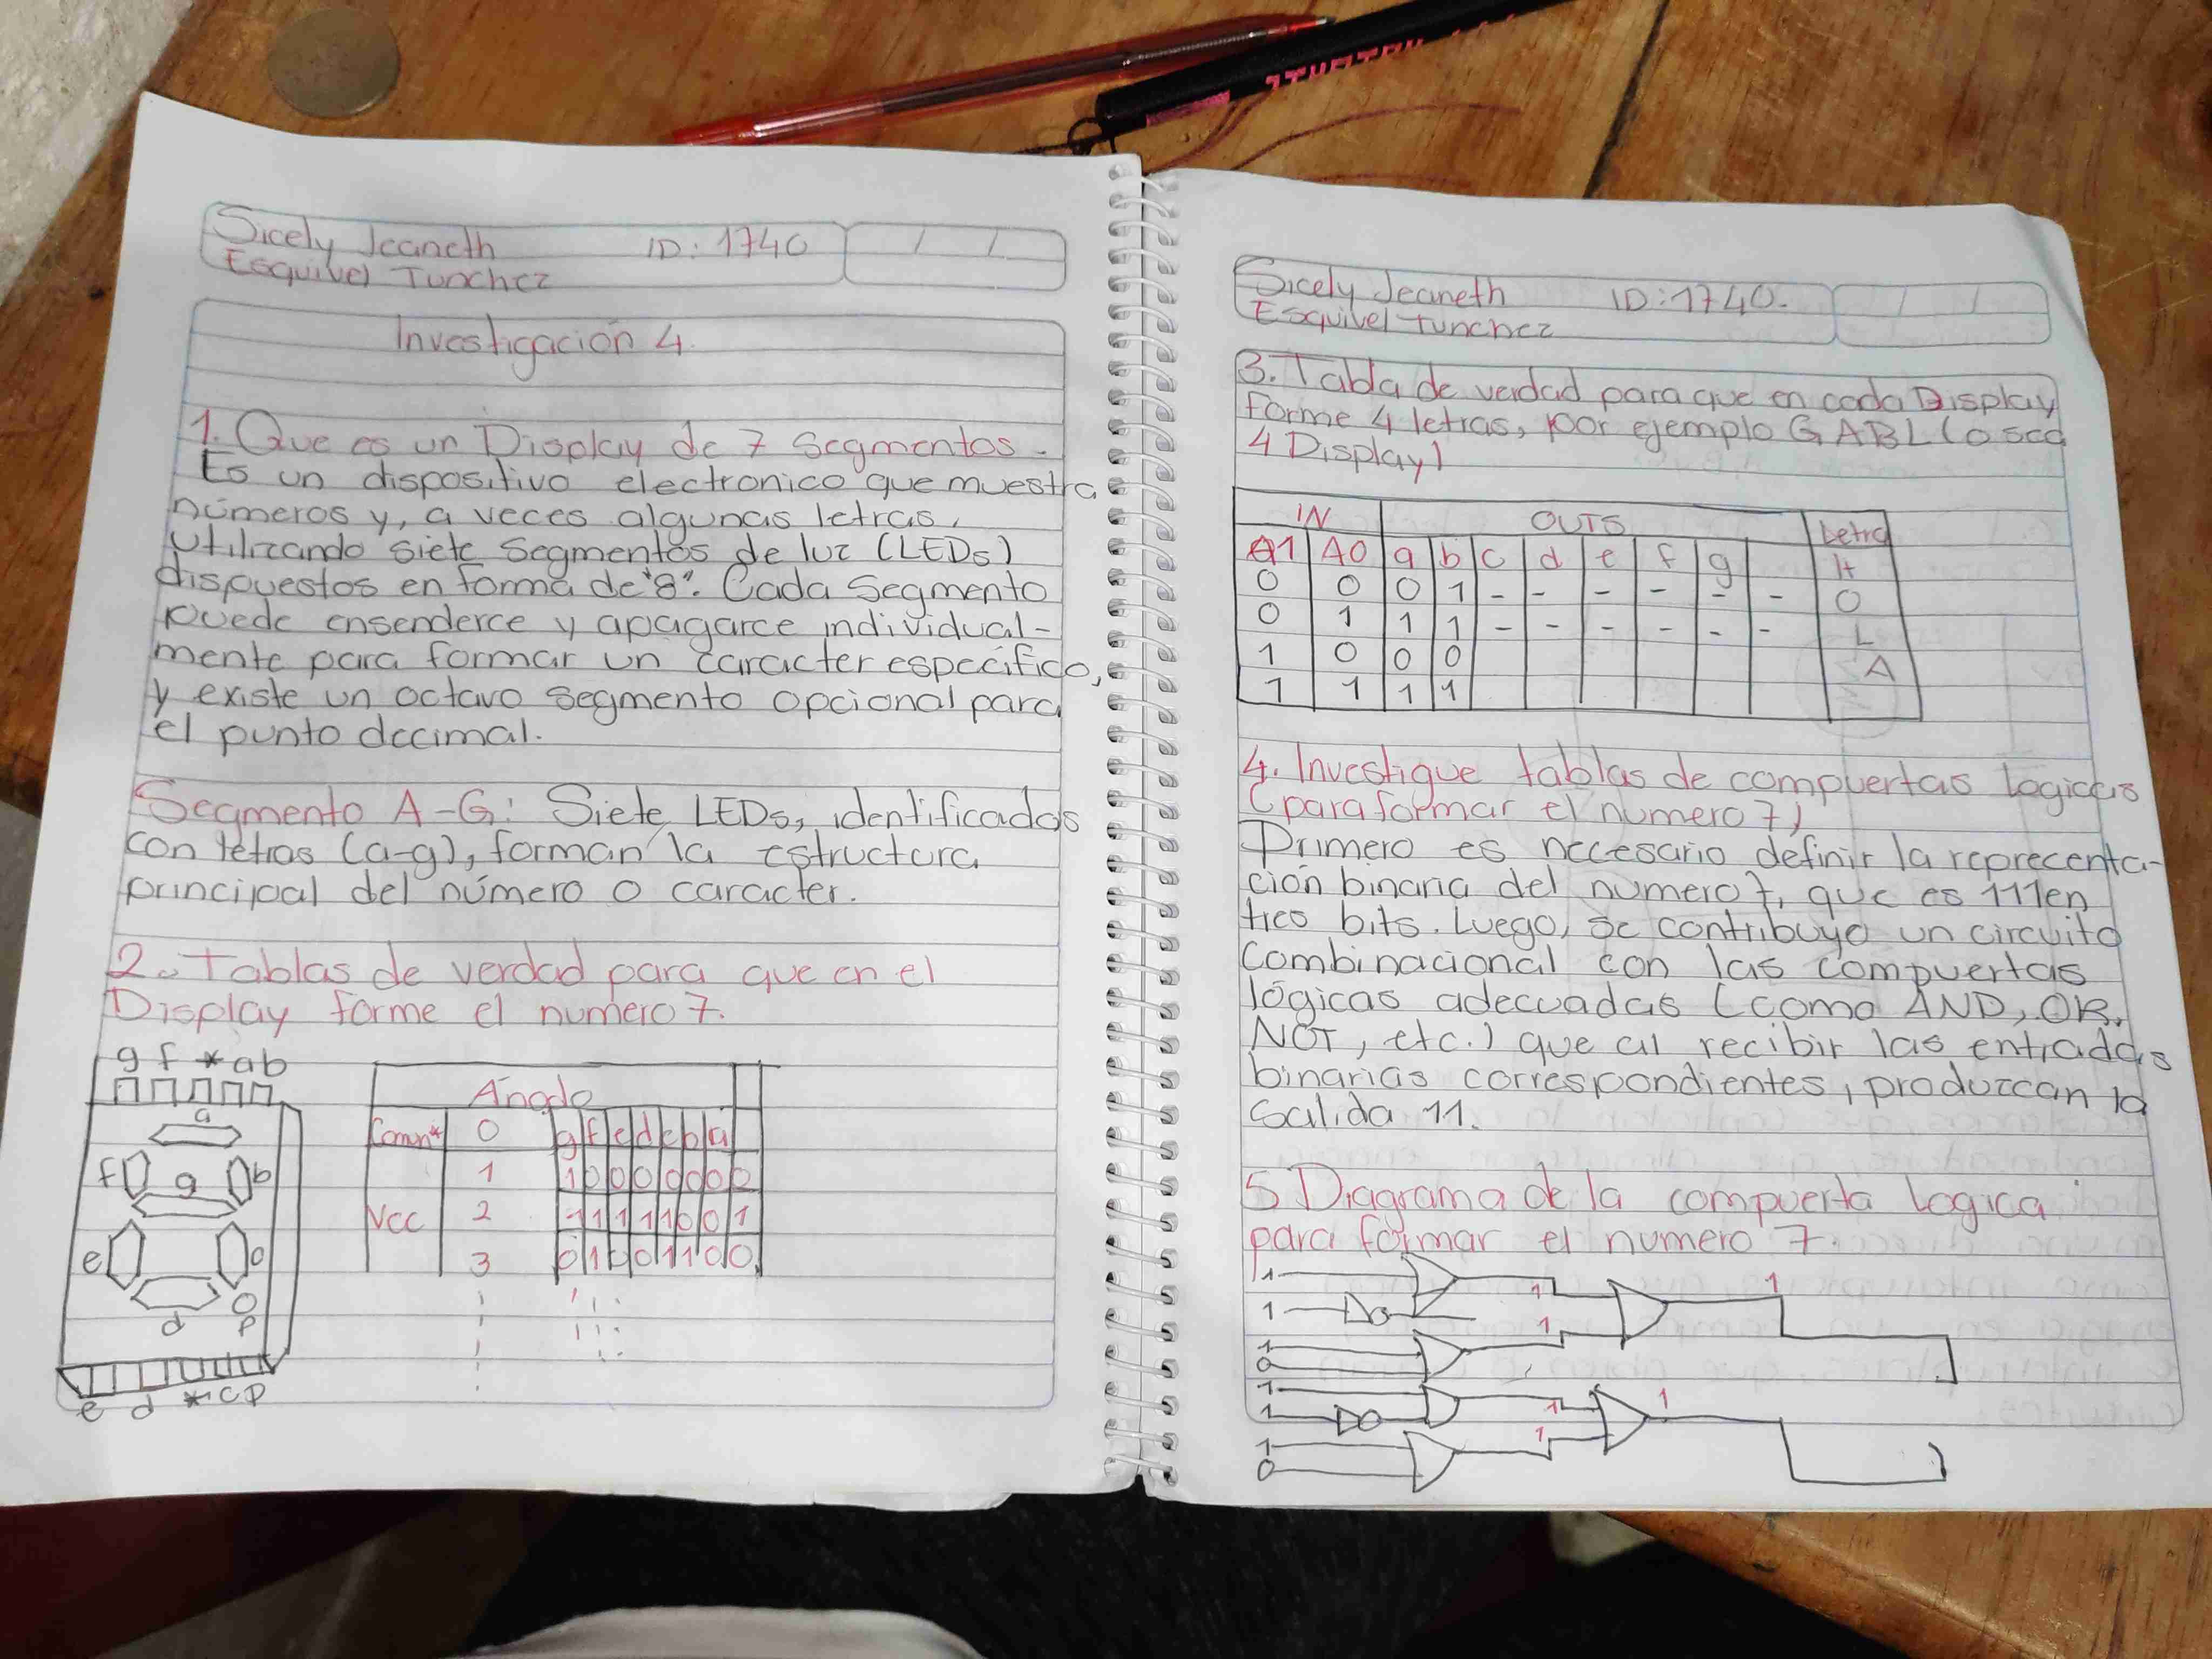 Sicely Jeaneth ID: 1740
Esquivel Tunchez
Investigación 4.
1. Que es un Display de 7 Segmentos.
Es un dispositivo electronico que muestra
números y, a veces algunas letras,
utilizando siete segmentos de luz (LEDs)
dispuestos en forma de "8". Cada segmento
puede ensenderce y apagarce individual-
mente para formar un caracter especifico,
y existe un octavo segmento opcional para
el punto decimal.
Segmento A-G: Siete LEDs, identificados
con letras (a-g), forman la estructura
principal del número o caracter.
2. Tablas de verdad para que en el
Display forme el numero 7.
g f * a b
a
f g b
e c
d p
e d * c p
Anodo
Comun* 0 g f e d c b a
1 1 0 0 0 0 0 0 0
Vcc 2 1 1 1 1 1 0 0 1
3 0 1 0 0 1 1 0 0
Sicely Jeaneth ID: 1740.
Esquivel Tunchez
3. Tabla de verdad para que en cada Display
forme 4 letras, por ejemplo GABL (o sea
4 Display)
IN OUTS Letra
A1 A0 a b c d e f g H
0 0 0 1 - - - - - - O
0 1 1 1 - - - - - - L
1 0 0 0 A
1 1 1 1
4. Investigue tablas de compuertas logicas
(para formar el numero 7)
Primero es necesario definir la reprecenta-
ción binaria del numero 7, que es 111 en
tres bits. Luego, se contribuye un circuito
combinacional con las compuertas
lógicas adecuadas (como AND, OR,
NOT, etc.) que al recibir las entradas
binarias correspondientes, produzcan la
salida 11.
5 Diagrama de la compuerta Logica
para formar el numero 7.
1 1 1
1 1
1
0
1 1 1
1 1
1
0